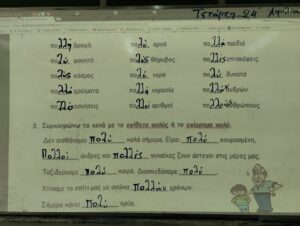 Τετάρτη 24 Απριλίου
πολλή βροχή πολύ αργά πολλά παιδιά
πολύ φαγητό πολύς θόρυβος πολλές επισκέψεις
πολύς κόσμος πολύ νερό πολύ δυνατά
πολλά χρώματα πολλή υγρασία πολλών ανδρών
πολλές ασκήσεις πολλοί αριθμοί πολλούς ανθρώπους
3. Συμπληρώνω τα κενά με το επίθετο πολύς ή το επίρρημα πολύ.
Δεν αισθάνομαι πολύ καλά σήμερα. Είμαι πολύ κουρασμένη.
Πολλοί άνδρες και πολλές γυναίκες ζουν άστεγοι στις μέρες μας.
Ταξιδεύουμε πολύ καιρό. Διασκεδάσαμε πολύ.
Χτίσαμε το σπίτι μας με αγώνα πολλών χρόνων.
Σήμερα κάνει πολύ κρύο.